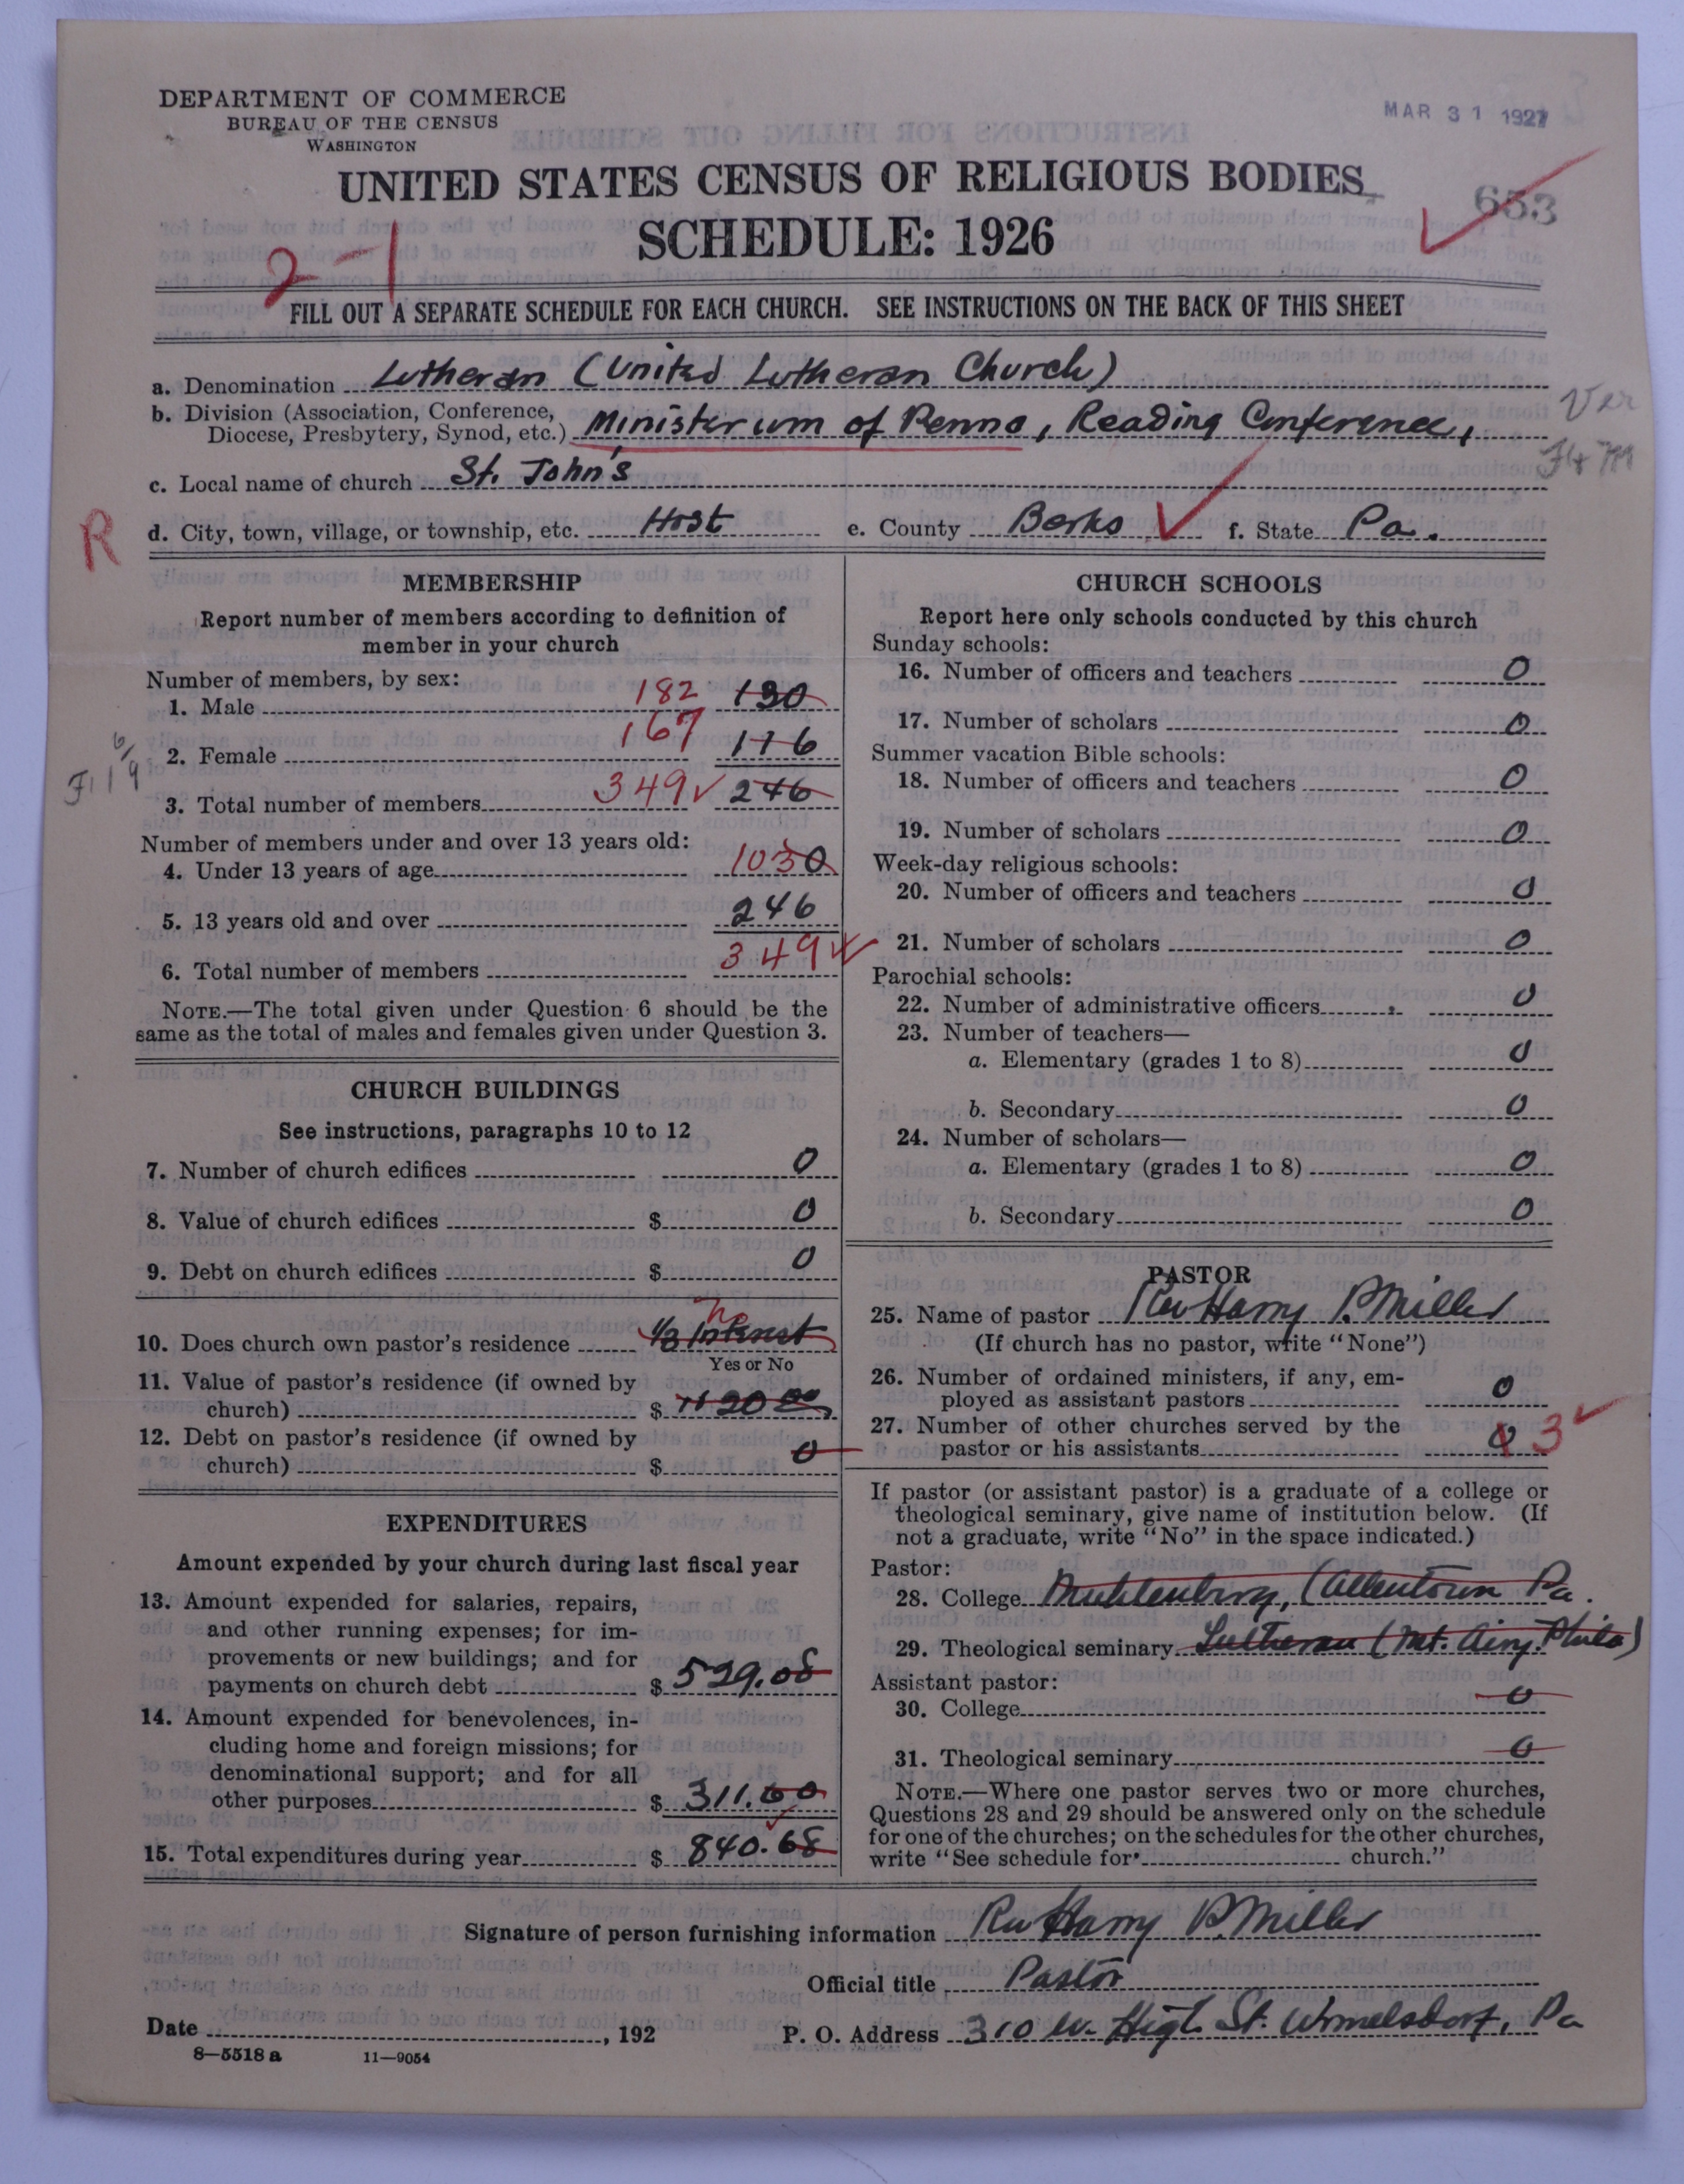 DEPARTMENT OF COMMERCE
BUREAU OF THE CENSUS
WASHINGTON
MAR 31 1927
UNITED STATES CENSUS OF RELIGIOUS BODIES
653
SCHEDULE: 1926
2-1
FILL OUT A SEPARATE SCHEDULE FOR EACH CHURCH. SEE INSTRUCTIONS ON THE BACK OF THIS SHEET
a. Denomination Lutheran (United Lutheran Church)
b. Division (Association, Conference,
Diocese, Presbytery, Synod, etc.) Ministerium of Penna, Reading Conference,
Ver
c. Local name of church St. John's
R
d. City, town, village, or township, etc. Host e. County Berks f. State Pa.
MEMBERSHIP
Report number of members according to definition of
member in your church
Number of members, by sex:
1. Male 182 130
2. Female 167 116
3. Total number of members 349 246
Number of members under and over 13 years old:
4. Under 13 years of age 1030
5. 13 years old and over 246
6. Total number of members 349
NOTE.—The total given under Question 6 should be the
same as the total of males and females given under Question 3.
CHURCH BUILDINGS
See instructions, paragraphs 10 to 12
7. Number of church edifices 0
8. Value of church edifices $ 0
9. Debt on church edifices $ 0
10. Does church own pastor's residence 1/3 Interest no
Yes or No
11. Value of pastor's residence (if owned by
church) $
12. Debt on pastor's residence (if owned by
church) $ 0
EXPENDITURES
Amount expended by your church during last fiscal year
13. Amount expended for salaries, repairs,
and other running expenses; for im-
provements or new buildings; and for
payments on church debt $ 529.08
14. Amount expended for benevolences, in-
cluding home and foreign missions; for
denominational support; and for all
other purposes $ 311.60
15. Total expenditures during year $ 840.68
CHURCH SCHOOLS
Report here only schools conducted by this church
Sunday schools:
16. Number of officers and teachers 0
17. Number of scholars 0
Summer vacation Bible schools:
18. Number of officers and teachers 0
19. Number of scholars 0
Week-day religious schools:
20. Number of officers and teachers 0
21. Number of scholars 0
Parochial schools:
22. Number of administrative officers 0
23. Number of teachers—
a. Elementary (grades 1 to 8) 0
b. Secondary 0
24. Number of scholars—
a. Elementary (grades 1 to 8) 0
b. Secondary 0
PASTOR
25. Name of pastor Rev Harry P. Miller
(If church has no pastor, write "None")
26. Number of ordained ministers, if any, em-
ployed as assistant pastors 0
27. Number of other churches served by the
pastor or his assistants 3
If pastor (or assistant pastor) is a graduate of a college or
theological seminary, give name of institution below. (If
not a graduate, write "No" in the space indicated.)
Pastor:
28. College Muhlenburg, (Allentown Pa.
29. Theological seminary Lutheran (Mt. Airy. Phila)
Assistant pastor:
30. College 0
31. Theological seminary 0
NOTE.—Where one pastor serves two or more churches,
Questions 28 and 29 should be answered only on the schedule
for one of the churches; on the schedules for the other churches,
write "See schedule for church."
Signature of person furnishing information Rev Harry P. Miller
Official title Pastor
Date , 192 P. O. Address 310 W. High St. Womelsdorf, Pa
8—5518 a 11—9054